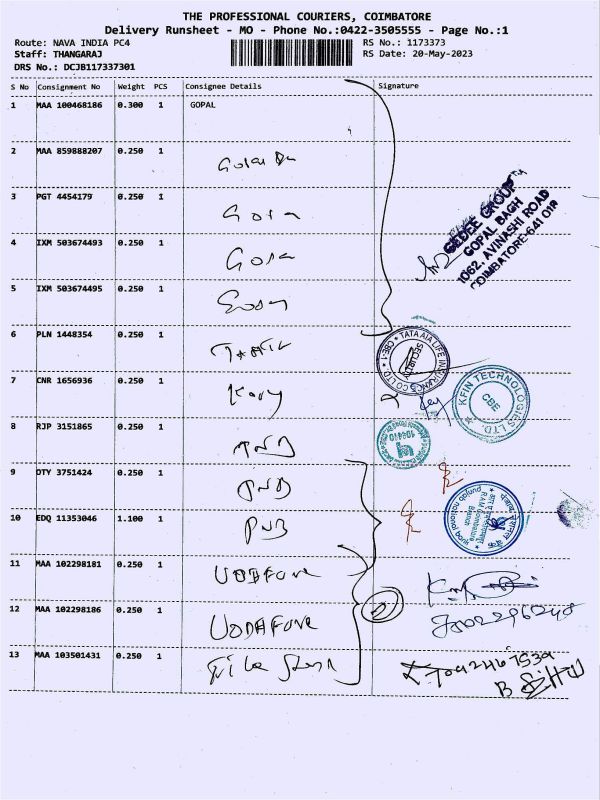 THE PROFESSIONAL COURIERS, COIMBATORE
Delivery Runsheet - MO - Phone No.:0422-3505555 - Page No.:1
Route: NAVA INDIA PC4 RS No.: 1173373
Staff: THANGARAJ RS Date: 20-May-2023
DRS No.: DCJB117337301
S No Consignment No Weight PCS Consignee Details Signature
1 MAA 100468186 0.300 1 GOPAL
2 MAA 859888207 0.250 1
3 PGT 4454179 0.250 1
GEDEE GROUP
GOPAL BAGH
1062, AVINASHI ROAD
COIMBATORE-641 018
4 IXM 503674493 0.250 1
5 IXM 503674495 0.250 1
6 PLN 1448354 0.250 1
TATA AIA LIFE INSURANCE CO LTD CBE-1
SECURITY
7 CNR 1656936 0.250 1
KFIN TECHNOLOGIES LTD.
CBE
8 RJP 3151865 0.250 1 PNB
9 OTY 3751424 0.250 1 PNB
10 EDQ 11353046 1.100 1 PNB
punjab national
11 MAA 102298181 0.250 1 VODAFONE
12 MAA 102298186 0.250 1 VODAFONE
13 MAA 103501431 0.250 1